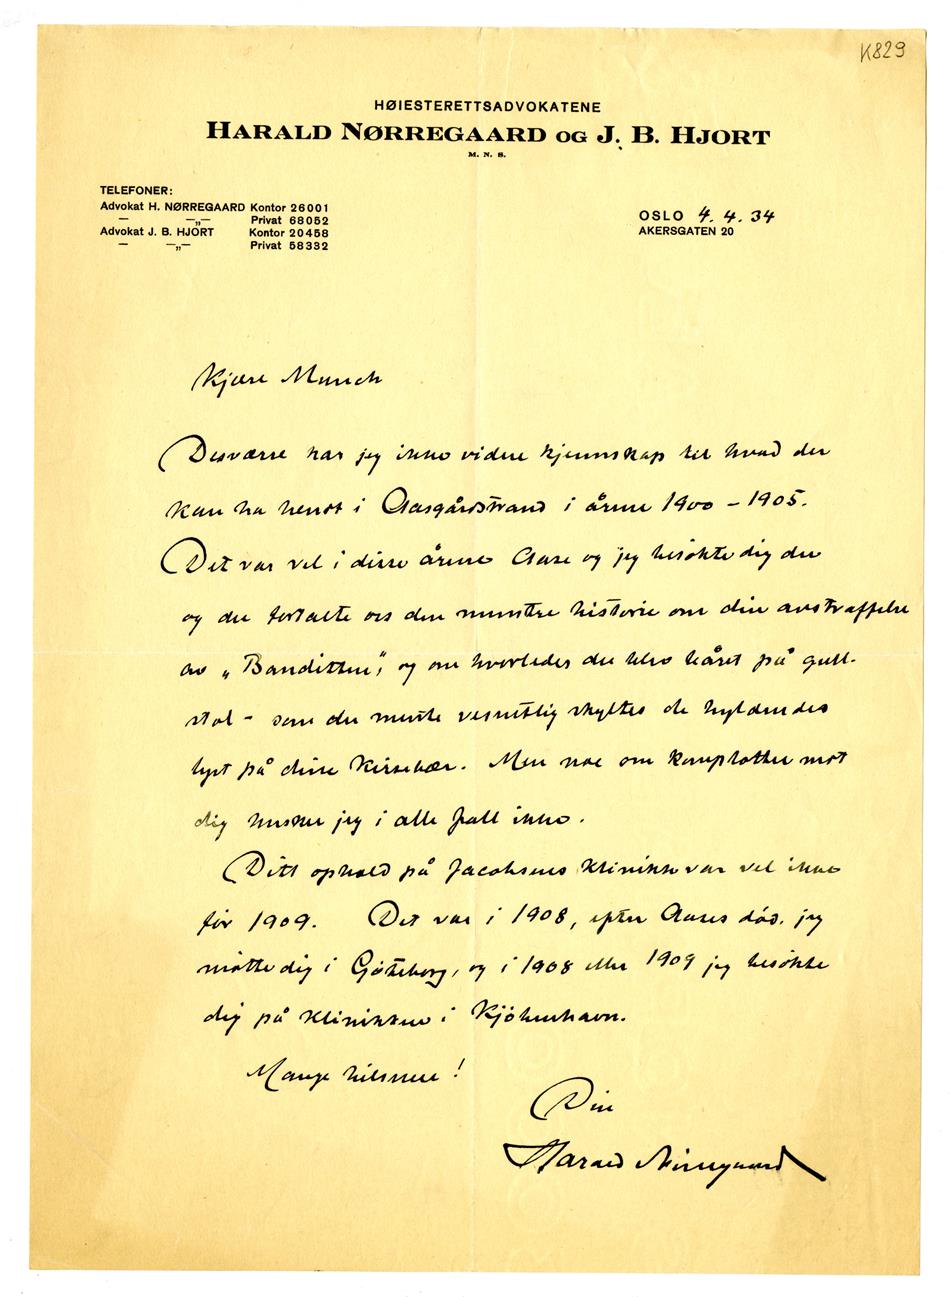 K829
HØIESTERETTSADVOKATENE
HARALD NØRREGAARD OG J. B. HJORT
M. N. S.
TELEFONER:
Advokat H. NØRREGAARD Kontor 26001
— —„— Privat 68052
Advokat J. B. HJORT Kontor 20458
— —„— Privat 58332
OSLO 4. 4. 34
AKERSGATEN 20
Kjære Munch
Desværre har jeg ikke videre kjennskap til hvad der
kan ha hendt i Aasgårdstrand i årene 1900 – 1905.
Det var vel i disse årene Aase og jeg besøkte dig der
og du fortalte oss den muntre historie om din avstraffelse
av „Banditten", og om hvorledes du blev båret på gull-
stol – som du mente vesentlig skyltes de hyldendes
lyst på dine kirsebær. Men noe om komplotter mot
dig husker jeg i alle fall ikke.
Ditt ophold på Jacobsens klinikk var vel ikke
før 1909. Det var i 1908, efter Aases død, jeg
møtte dig i Göteborg, og i 1908 eller 1909 jeg besøkte
dig på klinikken i Kjöbenhavn.
Mange hilsener!
Din
Harald Nörregaard